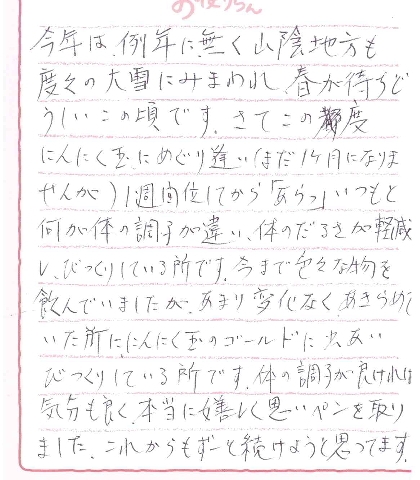 お便りらん
今年は例年に無く山陰地方も
度々の大雪にみまわれ春が待ちど
うしいこの頃です。さてこの度
にんにく玉にめぐり逢い(まだ1ヶ月になりま
せんが)1週間位してから「あらっ」いつもと
何か体の調子が違い、体のだるさが軽減
し、びっくりしている所です。今まで色々な物を
飲んでいましたが、あまり変化なくあきらめて
いた所ににんにく玉のゴールドに出あい
びっくりしている所です。体の調子が良ければ
気分も良く、本当に嬉しく思いペンを取り
ました。これからもずーと続けようと思ってます。